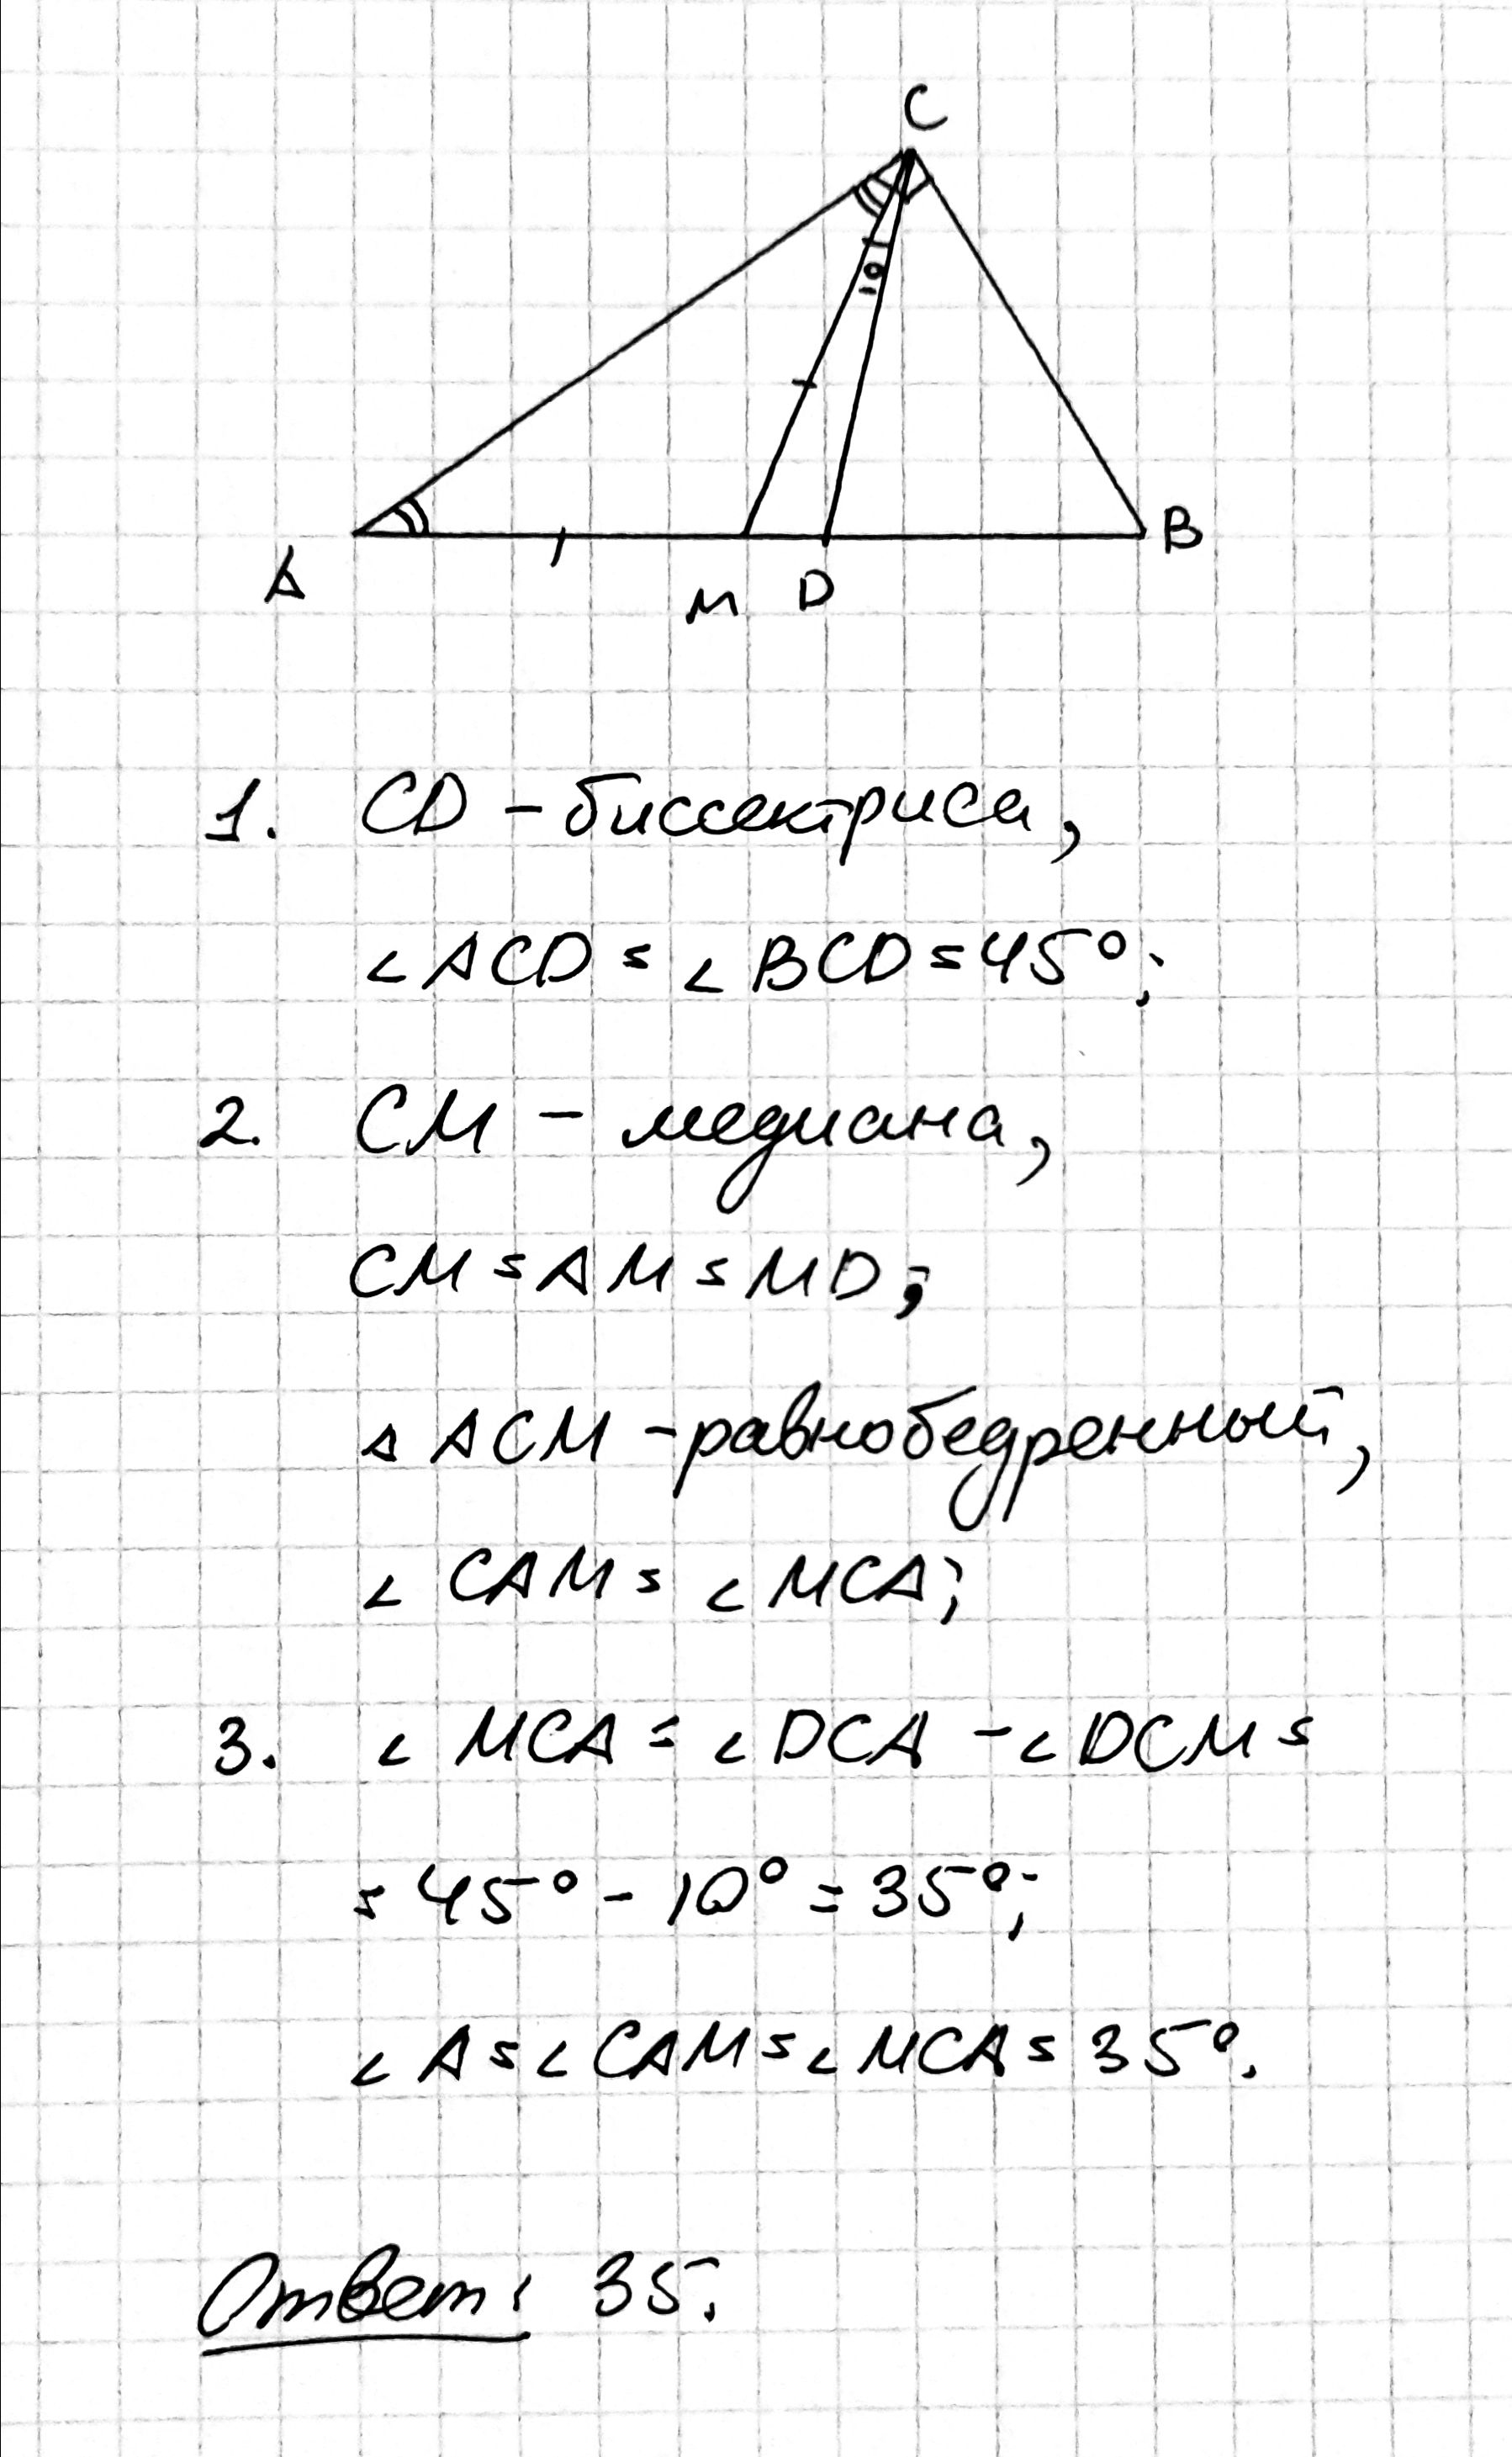 C
10
A
M D
B
1. CD - биссектриса,
∠ACD = ∠BCD = 45°;
2. CM - медиана,
CM = AM = MD;
△ ACM - равнобедренный,
∠ CAM = ∠ MCA;
3. ∠ MCA = ∠ DCA - ∠ DCM =
= 45° - 10° = 35°;
∠ A = ∠ CAM = ∠ MCA = 35°.
Ответ: 35.